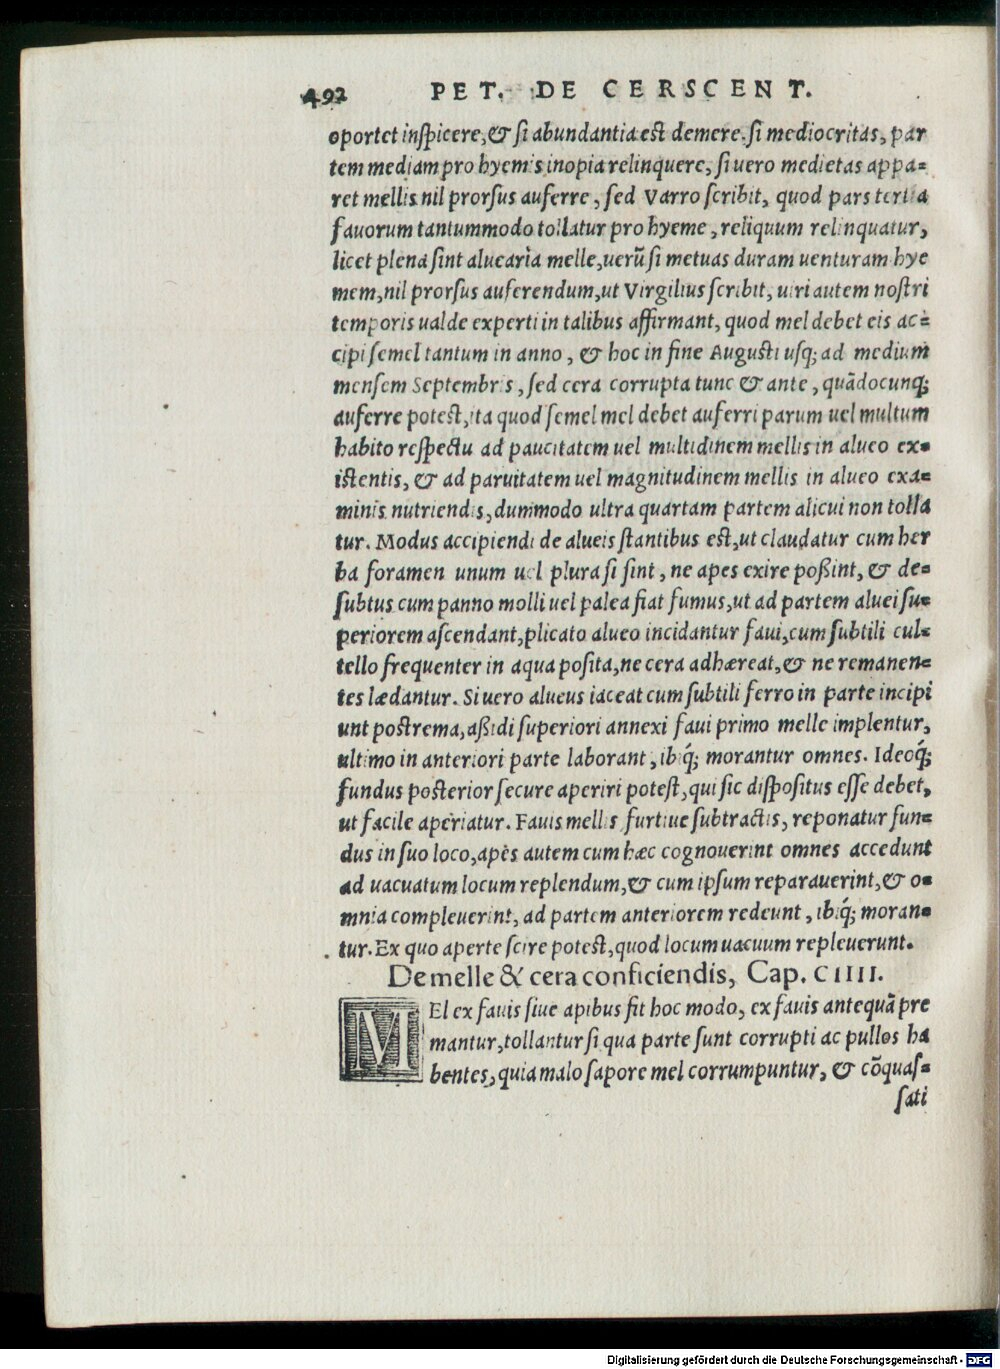 492 PET. DE CERSCENT.
oportet inſpicere, & ſi abundantia est demere. ſi mediocritas, par
tem mediam pro hyemis inopia relinquere, ſi uero medietas appa=
ret mellis nil prorſus auferre, ſed Varro ſcribit, quod pars tertia
fauorum tantummodo tollatur pro hyeme, reliquum relinquatur,
licet plena ſint aluearia melle, uerũ ſi metuas duram uenturam hye
mem, nil prorſus auferendum, ut Virgilius ſcribit, uiri autem noſtri
temporis ualde experti in talibus affirmant, quod mel debet eis ac=
cipi ſemel tantum in anno, & hoc in fine Auguſti uſq; ad medium
menſem Septembris, ſed cera corrupta tunc & ante, quãdocunq;
auferre poteſt, ita quod ſemel mel debet auferri parum uel multum
habito reſpectu ad paucitatem uel multidinem mellis in alueo ex=
iſtentis, & ad paruitatem uel magnitudinem mellis in alueo exa=
minis nutriendis, dummodo ultra quartam partem alicui non tolla
tur. Modus accipiendi de alueis ſtantibus eſt, ut claudatur cum her
ba foramen unum uel plura ſi ſint, ne apes exire poßint, & de=
ſubtus cum panno molli uel palea fiat fumus, ut ad partem aluei ſu=
periorem aſcendant, plicato alueo incidantur faui, cum ſubtili cul=
tello frequenter in aqua poſita, ne cera adhæreat, & ne remanen=
tes lædantur. Si uero alueus iaceat cum ſubtili ferro in parte incipi
unt poſtrema, aßidi ſuperiori annexi faui primo melle implentur,
ultimo in anteriori parte laborant, ibiq́; morantur omnes. Ideoq́;
fundus poſterior ſecure aperiri poteſt, qui ſic diſpoſitus eſſe debet,
ut facile aperiatur. Fauis mellis furtiue ſubtractis, reponatur fun=
dus in ſuo loco, apes autem cum hæc cognouerint omnes accedunt
ad uacuatum locum replendum, & cum ipſum reparauerint, & o=
mnia compleuerint, ad partem anteriorem redeunt, ibiq́; moran=
tur. Ex quo aperte ſcire poteſt, quod locum uacuum repleuerunt.
De melle & cera conficiendis, Cap. CIIII.
MEl ex fauis ſiue apibus fit hoc modo, ex fauis antequã pre
mantur, tollantur ſi qua parte ſunt corrupti ac pullos ha
bentes, quia malo ſapore mel corrumpuntur, & cõquaſ=
ſati
Digitalisierung gefördert durch die Deutsche Forschungsgemeinschaft - DFG